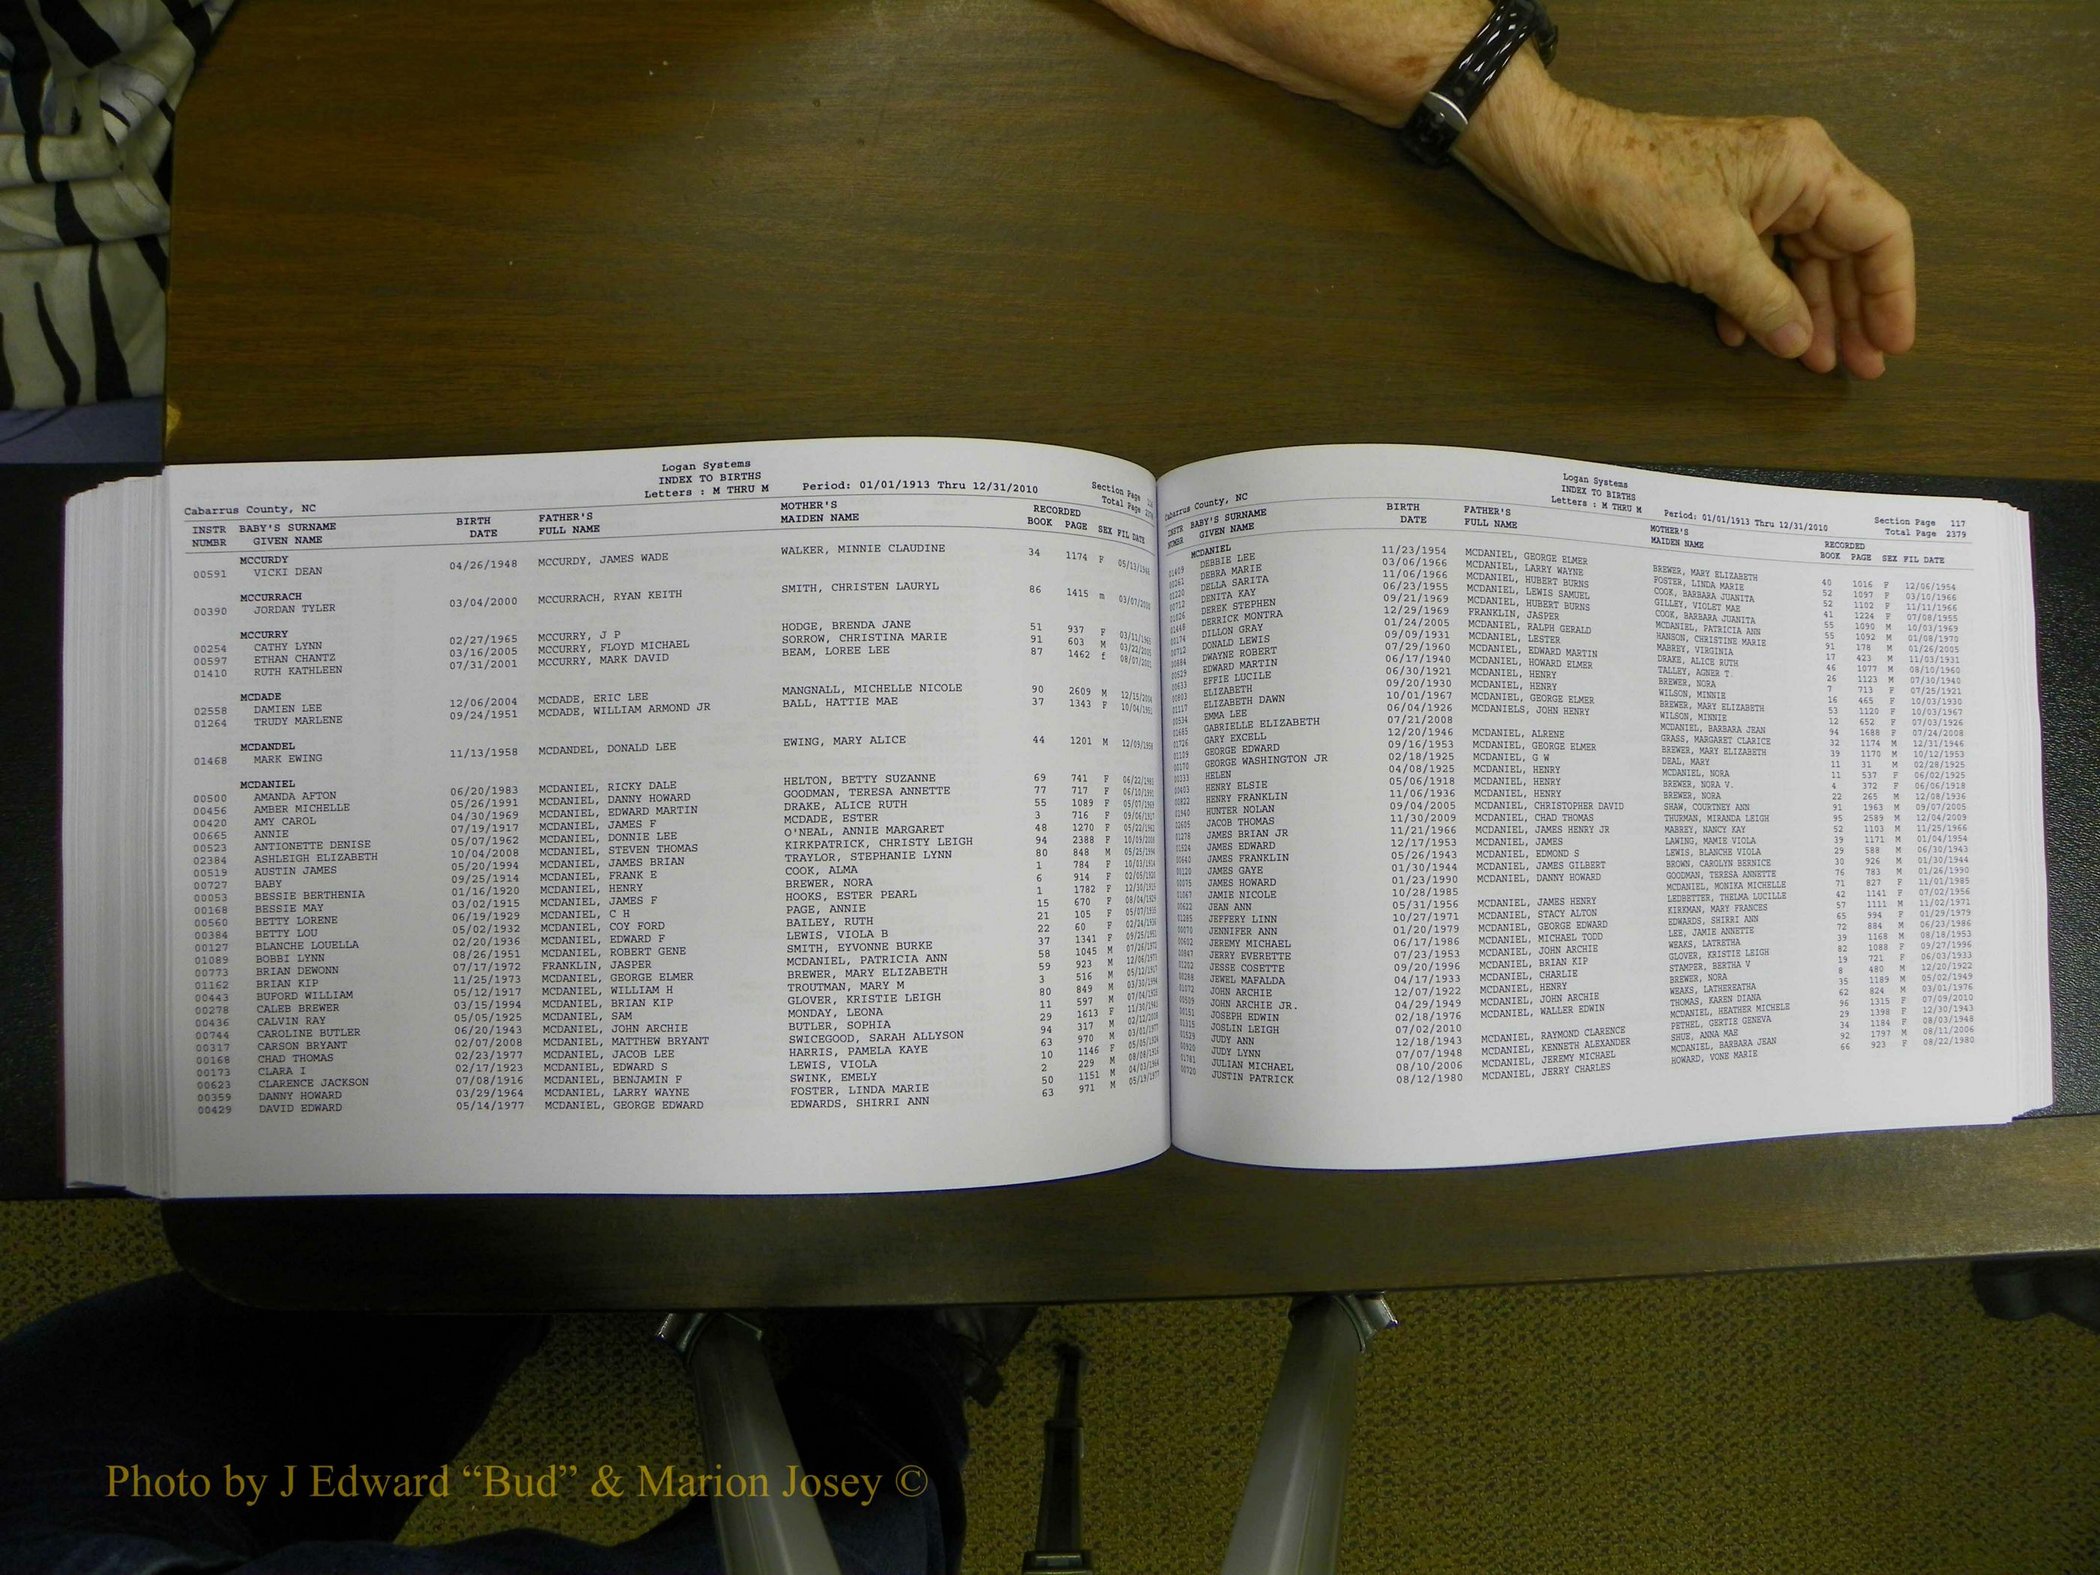 Logan Systems
INDEX TO BIRTHS
Cabarrus County, NC Letters : M THRU M Period: 01/01/1913 Thru 12/31/2010 Section Page
Total Page
INSTR BABY'S SURNAME BIRTH FATHER'S MOTHER'S RECORDED
NUMBR GIVEN NAME DATE FULL NAME MAIDEN NAME BOOK PAGE SEX FIL DATE
MCCURDY
00591 VICKI DEAN 04/26/1948 MCCURDY, JAMES WADE WALKER, MINNIE CLAUDINE 34 1174 F 05/13/1948
MCCURRACH
00390 JORDAN TYLER 03/04/2000 MCCURRACH, RYAN KEITH SMITH, CHRISTEN LAURYL 86 1415 m 03/07/2000
MCCURRY
00254 CATHY LYNN 02/27/1965 MCCURRY, J P HODGE, BRENDA JANE 51 937 F 03/11/1965
00597 ETHAN CHANTZ 03/16/2005 MCCURRY, FLOYD MICHAEL SORROW, CHRISTINA MARIE 91 603 M 03/22/2005
01410 RUTH KATHLEEN 07/31/2001 MCCURRY, MARK DAVID BEAM, LOREE LEE 87 1462 f 08/07/2001
MCDADE
02558 DAMIEN LEE 12/06/2004 MCDADE, ERIC LEE MANGNALL, MICHELLE NICOLE 90 2609 M 12/15/2004
01264 TRUDY MARLENE 09/24/1951 MCDADE, WILLIAM ARMOND JR BALL, HATTIE MAE 37 1343 F 10/04/1951
MCDANDEL
01468 MARK EWING 11/13/1958 MCDANDEL, DONALD LEE EWING, MARY ALICE 44 1201 M 12/09/1958
MCDANIEL
00500 AMANDA AFTON 06/20/1983 MCDANIEL, RICKY DALE HELTON, BETTY SUZANNE 69 741 F 06/22/1983
00456 AMBER MICHELLE 05/26/1991 MCDANIEL, DANNY HOWARD GOODMAN, TERESA ANNETTE 77 717 F 06/10/1991
00420 AMY CAROL 04/30/1969 MCDANIEL, EDWARD MARTIN DRAKE, ALICE RUTH 55 1089 F 05/07/1969
00665 ANNIE 07/19/1917 MCDANIEL, JAMES F MCDADE, ESTER 3 716 F 09/06/1917
00523 ANTIONETTE DENISE 05/07/1962 MCDANIEL, DONNIE LEE O'NEAL, ANNIE MARGARET 48 1270 F 05/22/1962
02384 ASHLEIGH ELIZABETH 10/04/2008 MCDANIEL, STEVEN THOMAS KIRKPATRICK, CHRISTY LEIGH 94 2388 F 10/09/2008
00519 AUSTIN JAMES 05/20/1994 MCDANIEL, JAMES BRIAN TRAYLOR, STEPHANIE LYNN 80 848 M 05/25/1994
00727 BABY 09/25/1914 MCDANIEL, FRANK E COOK, ALMA 1 784 F 10/03/1914
00053 BESSIE BERTHENIA 01/16/1920 MCDANIEL, HENRY BREWER, NORA 6 914 F 02/05/1920
00168 BESSIE MAY 03/02/1915 MCDANIEL, JAMES F HOOKS, ESTER PEARL 1 1782 F 12/30/1915
00560 BETTY LORENE 06/19/1929 MCDANIEL, C H PAGE, ANNIE 15 670 F 08/04/1929
00384 BETTY LOU 05/02/1932 MCDANIEL, COY FORD BAILEY, RUTH 21 105 F
00127 BLANCHE LOUELLA 02/20/1936 MCDANIEL, EDWARD F LEWIS, VIOLA B 22 60 F 02/24/1936
01089 BOBBI LYNN 08/26/1951 MCDANIEL, ROBERT GENE SMITH, EYVONNE BURKE 37 1341 F 09/25/1951
00773 BRIAN DEWONN 07/17/1972 FRANKLIN, JASPER MCDANIEL, PATRICIA ANN 58 1045 M 07/26/1972
01162 BRIAN KIP 11/25/1973 MCDANIEL, GEORGE ELMER BREWER, MARY ELIZABETH 59 923 M 12/06/1973
00443 BUFORD WILLIAM 05/12/1917 MCDANIEL, WILLIAM H TROUTMAN, MARY M 3 516 M 05/12/1917
00278 CALEB BREWER 03/15/1994 MCDANIEL, BRIAN KIP GLOVER, KRISTIE LEIGH 80 849 M 03/30/1994
00436 CALVIN RAY 05/05/1925 MCDANIEL, SAM MONDAY, LEONA 11 597 M 07/04/1925
00744 CAROLINE BUTLER 06/20/1943 MCDANIEL, JOHN ARCHIE BUTLER, SOPHIA 29 1613 F 11/30/1943
00317 CARSON BRYANT 02/07/2008 MCDANIEL, MATTHEW BRYANT SWICEGOOD, SARAH ALLYSON 94 317 M 02/12/2008
00168 CHAD THOMAS 02/23/1977 MCDANIEL, JACOB LEE HARRIS, PAMELA KAYE 63 970 M 03/01/1977
00173 CLARA I 02/17/1923 MCDANIEL, EDWARD S LEWIS, VIOLA 10 1146 F 05/05/1924
00623 CLARENCE JACKSON 07/08/1916 MCDANIEL, BENJAMIN F SWINK, EMELY 2 229 M 08/08/1916
00359 DANNY HOWARD 03/29/1964 MCDANIEL, LARRY WAYNE FOSTER, LINDA MARIE 50 1151 M 04/03/1964
00429 DAVID EDWARD 05/14/1977 MCDANIEL, GEORGE EDWARD EDWARDS, SHIRRI ANN 63 971 M 05/19/1977
Logan Systems
INDEX TO BIRTHS
Cabarrus County, NC Letters : M THRU M Period: 01/01/1913 Thru 12/31/2010 Section Page 117
Total Page 2379
INSTR BABY'S SURNAME BIRTH FATHER'S MOTHER'S RECORDED
NUMBR GIVEN NAME DATE FULL NAME MAIDEN NAME BOOK PAGE SEX FIL DATE
MCDANIEL
01409 DEBBIE LEE 11/23/1954 MCDANIEL, GEORGE ELMER BREWER, MARY ELIZABETH 40 1016 F 12/06/1954
00261 DEBRA MARIE 03/06/1966 MCDANIEL, LARRY WAYNE FOSTER, LINDA MARIE 52 1097 F 03/10/1966
01220 DELLA SARITA 11/06/1966 MCDANIEL, HUBERT BURNS COOK, BARBARA JUANITA 52 1102 F 11/11/1966
00712 DENITA KAY 06/23/1955 MCDANIEL, LEWIS SAMUEL GILLEY, VIOLET MAE 41 1224 F 07/08/1955
01026 DEREK STEPHEN 09/21/1969 MCDANIEL, HUBERT BURNS COOK, BARBARA JUANITA 55 1090 M 10/03/1969
01446 DERRICK MONTRA 12/29/1969 FRANKLIN, JASPER MCDANIEL, PATRICIA ANN 55 1092 M 01/08/1970
00174 DILLON GRAY 01/24/2005 MCDANIEL, RALPH GERALD HANSON, CHRISTINE MARIE 91 178 M 01/26/2005
00712 DONALD LEWIS 09/09/1931 MCDANIEL, LESTER MABREY, VIRGINIA 17 423 M 11/03/1931
00884 DWAYNE ROBERT 07/29/1960 MCDANIEL, EDWARD MARTIN DRAKE, ALICE RUTH 46 1077 M 08/10/1960
00529 EDWARD MARTIN 06/17/1940 MCDANIEL, HOWARD ELMER TALLEY, AGNER T. 26 1123 M 07/30/1940
00633 EFFIE LUCILE 06/30/1921 MCDANIEL, HENRY BREWER, NORA 7 713 F 07/25/1921
00803 ELIZABETH 09/20/1930 MCDANIEL, HENRY WILSON, MINNIE 16 465 F 10/03/1930
01117 ELIZABETH DAWN 10/01/1967 MCDANIEL, GEORGE ELMER BREWER, MARY ELIZABETH 53 1120 F 10/03/1967
00534 EMMA LEE 06/04/1926 MCDANIELS, JOHN HENRY WILSON, MINNIE 12 652 F 07/03/1926
01685 GABRIELLE ELIZABETH 07/21/2008 MCDANIEL, BARBARA JEAN 94 1688 F 07/24/2008
01726 GARY EXCELL 12/20/1946 MCDANIEL, ALRENE GRASS, MARGARET CLARICE 32 1174 M 12/31/1946
01109 GEORGE EDWARD 09/16/1953 MCDANIEL, GEORGE ELMER BREWER, MARY ELIZABETH 39 1170 M 10/12/1953
00170 GEORGE WASHINGTON JR 02/18/1925 MCDANIEL, G W DEAL, MARY 11 31 M 02/28/1925
00333 HELEN 04/08/1925 MCDANIEL, HENRY MCDANIEL, NORA 11 537 F 06/02/1925
00403 HENRY ELSIE 05/06/1918 MCDANIEL, HENRY BREWER, NORA V. 4 372 F 06/06/1918
00822 HENRY FRANKLIN 11/06/1936 MCDANIEL, HENRY BREWER, NORA 22 265 M 12/08/1936
01940 HUNTER NOLAN 09/04/2005 MCDANIEL, CHRISTOPHER DAVID SHAW, COURTNEY ANN 91 1963 M 09/07/2005
02605 JACOB THOMAS 11/30/2009 MCDANIEL, CHAD THOMAS THURMAN, MIRANDA LEIGH 95 2589 M 12/04/2009
01278 JAMES BRIAN JR 11/21/1966 MCDANIEL, JAMES HENRY JR MABREY, NANCY KAY 52 1103 M 11/25/1966
01524 JAMES EDWARD 12/17/1953 MCDANIEL, JAMES LAWING, MAMIE VIOLA 39 1171 M 01/04/1954
00640 JAMES FRANKLIN 05/26/1943 MCDANIEL, EDMOND S LEWIS, BLANCHE VIOLA 29 588 M 06/30/1943
00120 JAMES GAYE 01/30/1944 MCDANIEL, JAMES GILBERT BROWN, CAROLYN BERNICE 30 926 M 01/30/1944
00075 JAMES HOWARD 01/23/1990 MCDANIEL, DANNY HOWARD GOODMAN, TERESA ANNETTE 76 783 M 01/26/1990
01067 JAMIE NICOLE 10/28/1985 MCDANIEL, MONIKA MICHELLE 71 827 F 11/01/1985
00622 JEAN ANN 05/31/1956 MCDANIEL, JAMES HENRY LEDBETTER, THELMA LUCILLE 42 1141 F 07/02/1956
01285 JEFFERY LINN 10/27/1971 MCDANIEL, STACY ALTON KIRKMAN, MARY FRANCES 57 1111 M 11/02/1971
00070 JENNIFER ANN 01/20/1979 MCDANIEL, GEORGE EDWARD EDWARDS, SHIRRI ANN 65 994 F 01/29/1979
00602 JEREMY MICHAEL 06/17/1986 MCDANIEL, MICHAEL TODD LEE, JAMIE ANNETTE 72 884 M 06/23/1986
00847 JERRY EVERETTE 07/23/1953 MCDANIEL, JOHN ARCHIE WEAKS, LATRETHA 39 1168 M 08/18/1953
01202 JESSE COSETTE 09/20/1996 MCDANIEL, BRIAN KIP GLOVER, KRISTIE LEIGH 82 1088 F 09/27/1996
00288 JEWEL MAFALDA 04/17/1933 MCDANIEL, CHARLIE STAMPER, BERTHA V 19 721 F 06/03/1933
01072 JOHN ARCHIE 12/07/1922 MCDANIEL, HENRY BREWER, NORA 8 480 M 12/20/1922
00509 JOHN ARCHIE JR. 04/29/1949 MCDANIEL, JOHN ARCHIE WEAKS, LATHEREATHA 35 1189 M 05/02/1949
00151 JOSEPH EDWIN 02/18/1976 MCDANIEL, WALLER EDWIN THOMAS, KAREN DIANA 62 824 M 03/01/1976
01315 JOSLIN LEIGH 07/02/2010 MCDANIEL, HEATHER MICHELE 96 1315 F 07/09/2010
01529 JUDY ANN 12/18/1943 MCDANIEL, RAYMOND CLARENCE PETHEL, GERTIE GENEVA 29 1398 F 12/30/1943
00920 JUDY LYNN 07/07/1948 MCDANIEL, KENNETH ALEXANDER SHUE, ANNA MAE 34 1184 F 08/03/1948
01781 JULIAN MICHAEL 08/10/2006 MCDANIEL, JEREMY MICHAEL MCDANIEL, BARBARA JEAN 92 1797 M 08/11/2006
00720 JUSTIN PATRICK 08/12/1980 MCDANIEL, JERRY CHARLES HOWARD, VONE MARIE 66 923 F 08/22/1980
Photo by J Edward “Bud” & Marion Josey ©